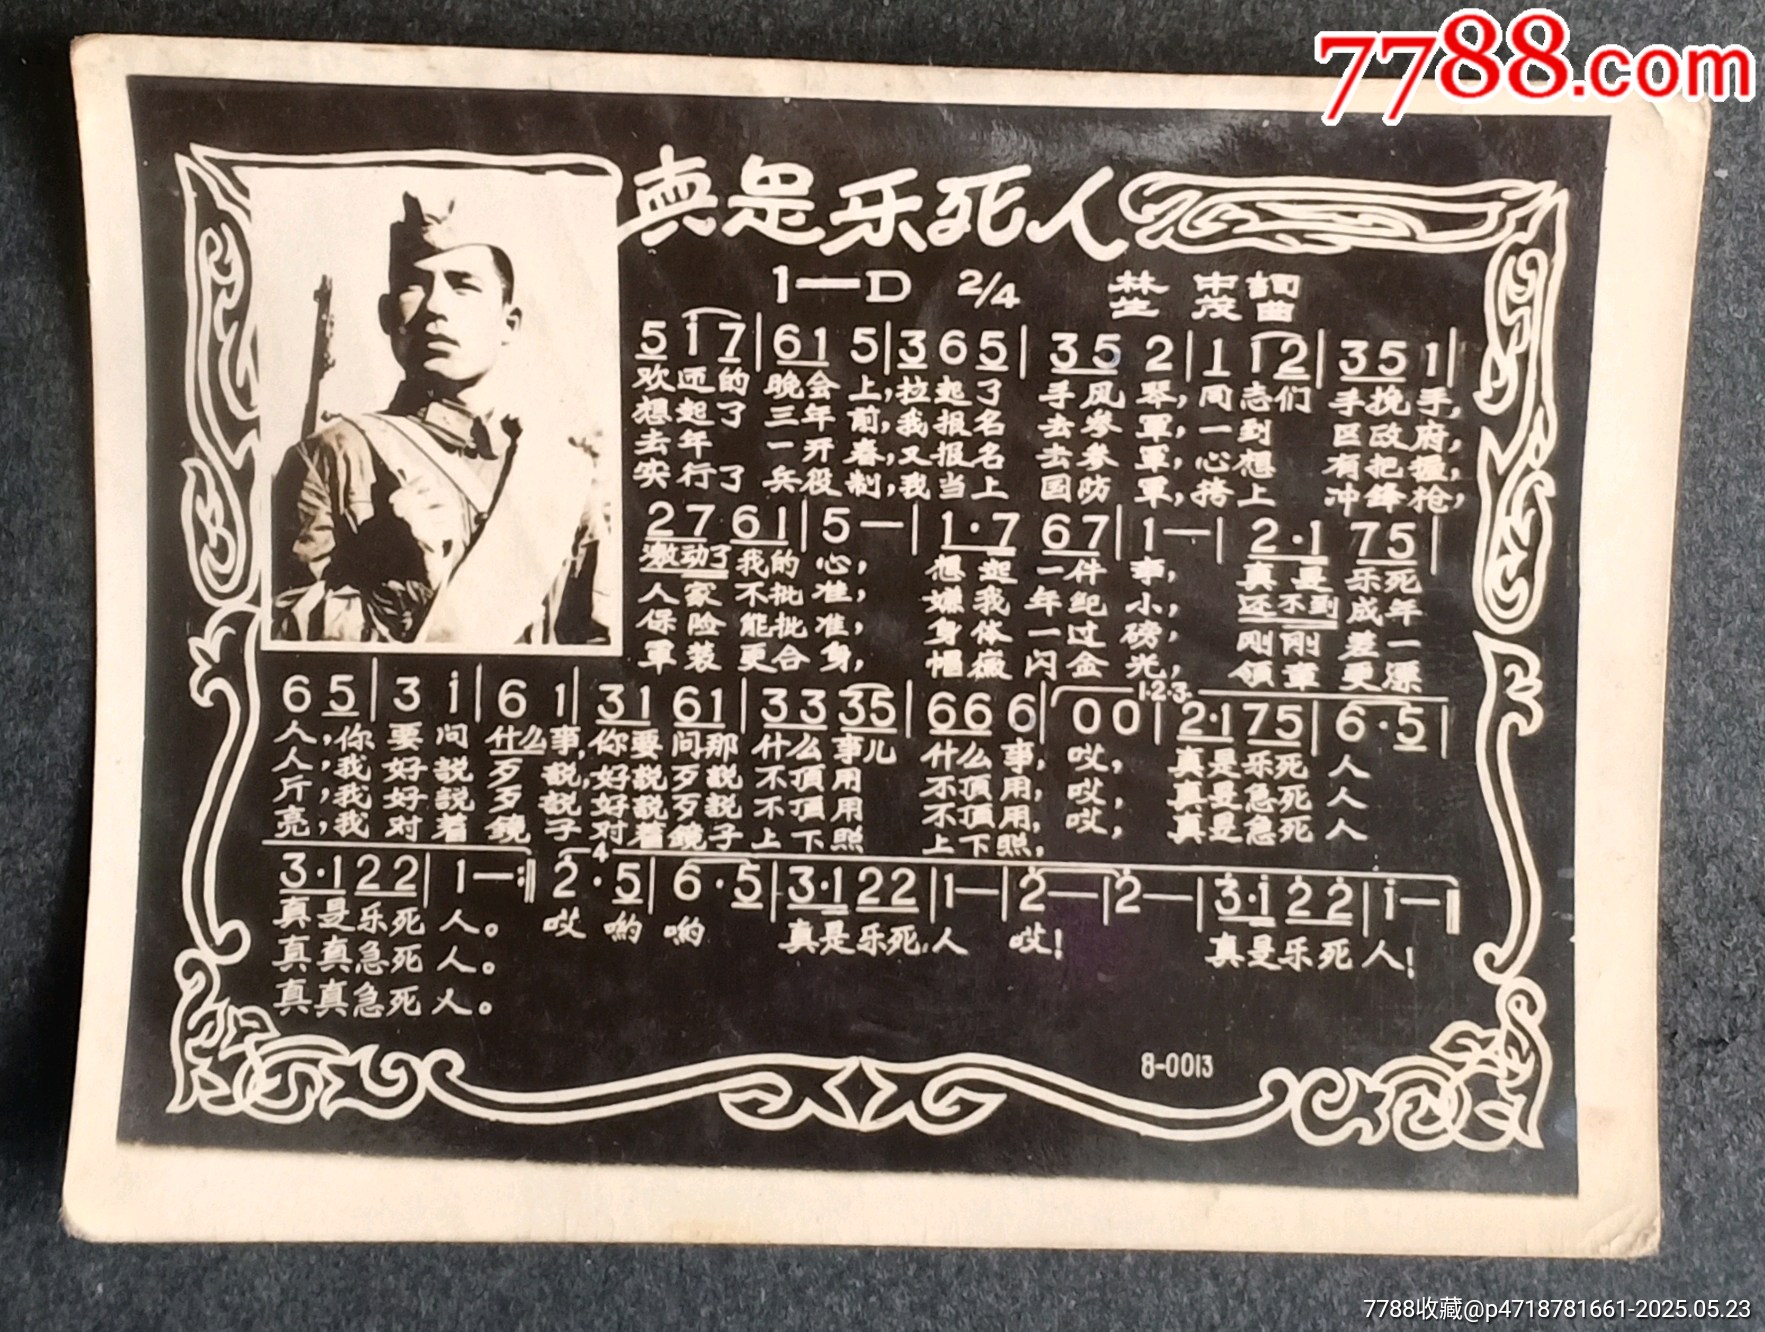 7788.com
真是乐死人
1—D 2/4 林中詞
生茂曲
5 1 7 | 6 1 5 | 3 6 5 | 3 5 2 | 1 1 2 | 3 5 1 |
欢迎的 晚会上,拉起了 手风琴,同志们 手挽手,
想起了 三年前,我报名 去参軍,一到 区政府,
去年 一开春,又报名 去参軍,心想 有把握,
实行了 兵役制,我当上 国防軍,挎上 冲鋒枪,
2 7 6 1 | 5 — | 1·7 6 7 | 1 — | 2·1 7 5 |
激动了我的心, 想起一件事, 真是乐死
人家不批准, 嫌我年纪小, 还不到成年
保险能批准, 身体一过磅, 刚刚差一
軍装更合身, 帽徽闪金光, 領章更漂
6 5 | 3 i | 6 1 | 3 1 6 1 | 3 3 3 5 | 6 6 6 | 0 0 | 2·1 7 5 | 6·5 |
1·2·3·
人,你要问什么事,你要问那什么事儿 什么事, 哎, 真是乐死人
人,我好説歹説,好説歹説不頂用 不頂用, 哎, 真是急死人
斤,我好説歹説,好説歹説不頂用 不頂用, 哎, 真是急死人
亮,我对着鏡子对着鏡子上下照 上下照, 哎, 真是急死人
4
3·1 2 2 | 1 — :‖ 2·5 | 6·5 | 3·1 2 2 | 1 — | 2 — | 2 — | 3·i 2 2 | i — ‖
真是乐死人。 哎 喲 喲 真是乐死人 哎! 真是乐死人!
真真急死人。
真真急死人。
8-0013
7788收藏@p4718781661-2025.05.23